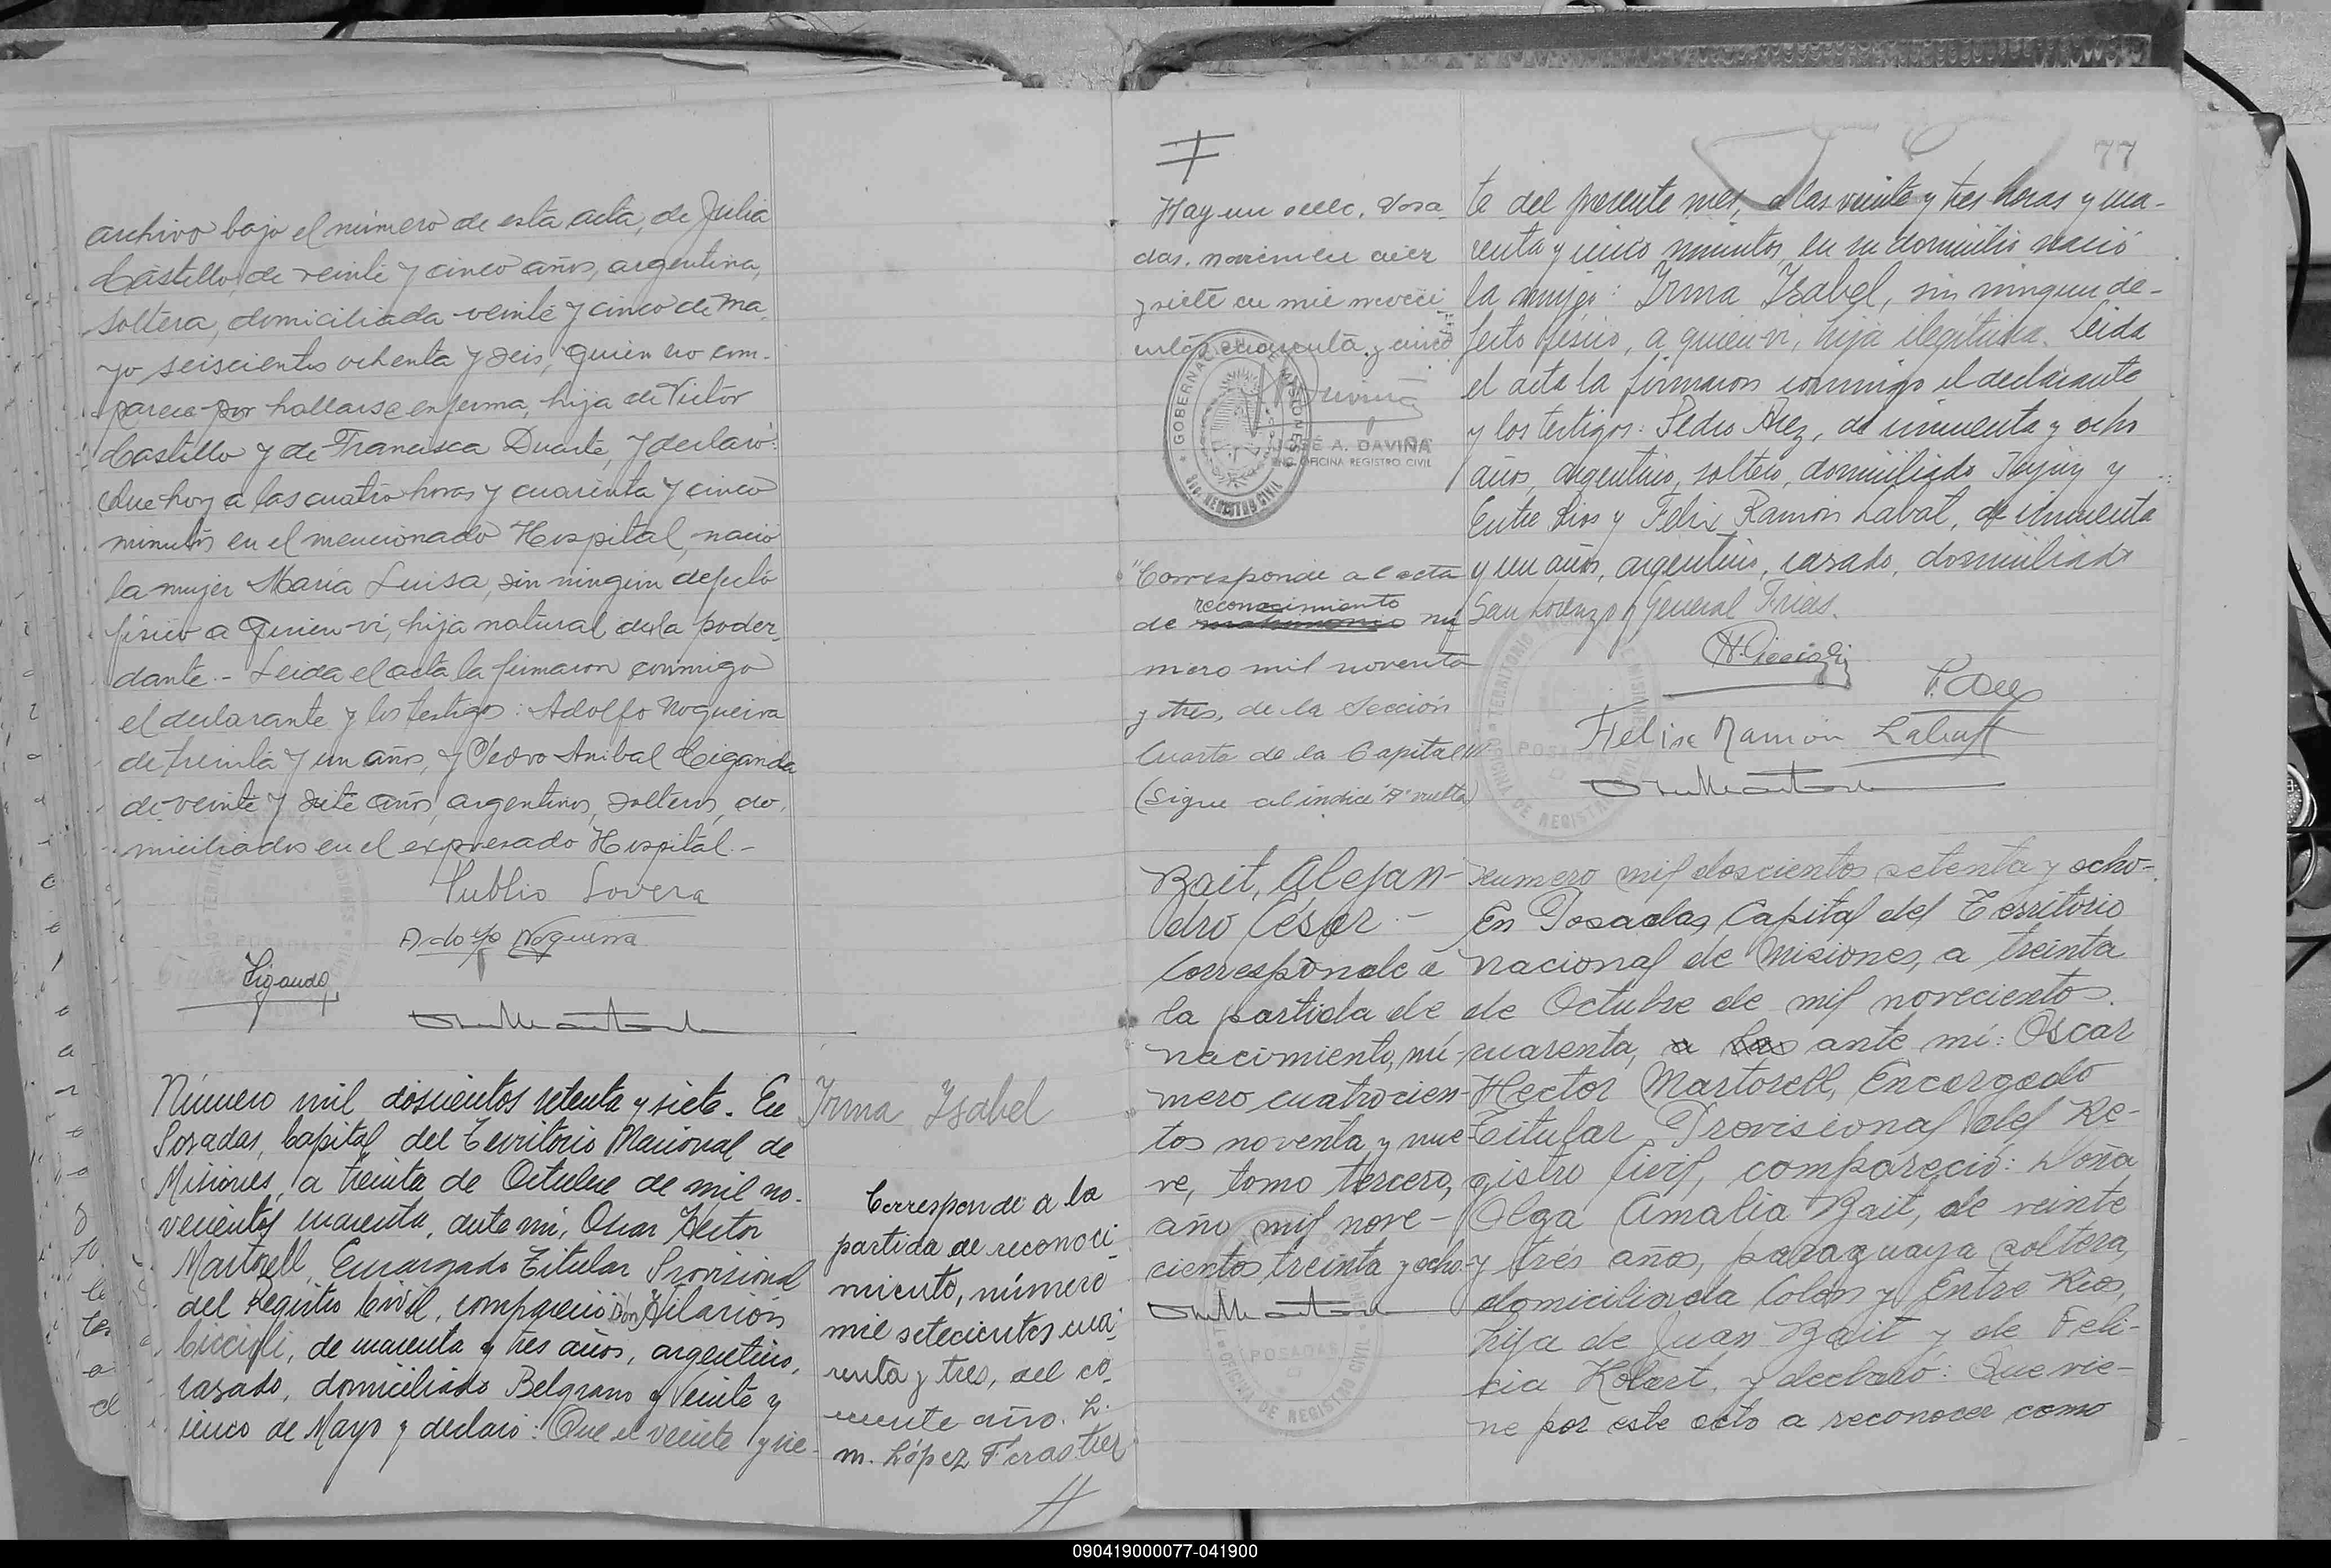 archivo bajo el número de esta acta, de Julia
Castillo, de veinte y cinco años, argentina,
soltera, domiciliada veinte y cinco de Ma-
yo seiscientos ochenta y seis, quien no com-
parece por hallarse enferma, hija de Victor
Castillo y de Francisca Duarte, y declaró:
Que hoy a las cuatro horas y cuarenta y cinco
minutos en el mencionado Hospital, nació
la mujer María Luisa, sin ningun defecto
físico a quien vi, hija natural de la poder-
dante.- Leida el acta la firmaron conmigo
el declarante y los testigos: Adolfo Nogueira
de treinta y un años, y Pedro Anibal Ciganda
de veinte y siete años, argentinos, solteros, do-
miciliados en el expresado Hospital.-
Publio Lovera
Adolfo Nogueira
Ciganda
Número mil doscientos setenta y siete. En
Posadas, Capital del Territorio Nacional de
Misiones, a treinta de Octubre de mil no-
vecientos cuarenta, ante mi, Oscar Hector
Martorell, Encargado Titular Provisional
del Registro Civil, compareció Don Hilarión
de cuarenta y tres años, argentino,
casado, domiciliado Belgrano y Veinte y
cinco de Mayo y declaró: Que el veinte y sie-
Irma Isabel
Corresponde a la
partida de reconoci-
miento, número
mil setecientos cua-
renta y tres, del co-
rriente año. L.
M. López Ferastier
77
Hay un sello. Posa-
das, noviembre diez
y siete de mil noveci
entos cuarenta y cinco
GOBERNACION MISIONES
JOSÉ A. DAVIÑA
ENC. OFICINA REGISTRO CIVIL
"Corresponde al acta
reconocimiento
de matrimonio nú
mero mil noventa
y tres, de la Sección
Cuarta de la Capital"
(Sigue al índice "A" vuelta)
te del presente mes, a las veinte y tres horas y cua-
renta y cinco minutos, en su domicilio nació
la mujer: Irma Isabel, sin ningun de-
fecto físico, a quien vi, hija ilegítima. Leida
el acta la firmaron conmigo el declarante
y los testigos: Pedro de cincuenta y ocho
años, argentino, soltero, domiciliado Jujuy y
Entre Rios y Felix Ramón Labat, de cincuenta
y un años, argentino, casado, domiciliado
San Lorenzo y General Frias.
Felix Ramón Labat
Bait, Alejan-
dro César.-
Corresponde a
la partida de
nacimiento, nú-
mero cuatrocien-
tos noventa y nue-
ve, tomo tercero,
año mil nove-
cientos treinta y ocho-
POSADAS
OFICINA DE REGISTRO CIVIL
Numero mil doscientos setenta y ocho-
En Posadas, Capital del Territorio
Nacional de Misiones, a treinta
de Octubre de mil novecientos
cuarenta, a las ante mi: Oscar
Hector Martorell, Encargado
Titular Provisional del Re-
gistro Civil, compareció: Doña
Olga Amalia Bait, de veinte
y trés años, paraguaya soltera,
domiciliada Colón y Entre Rios,
hija de Juan Bait y de Feli-
cia Kobert, y declaró: Que vie-
ne por este acto a reconocer como
090419000077-041900